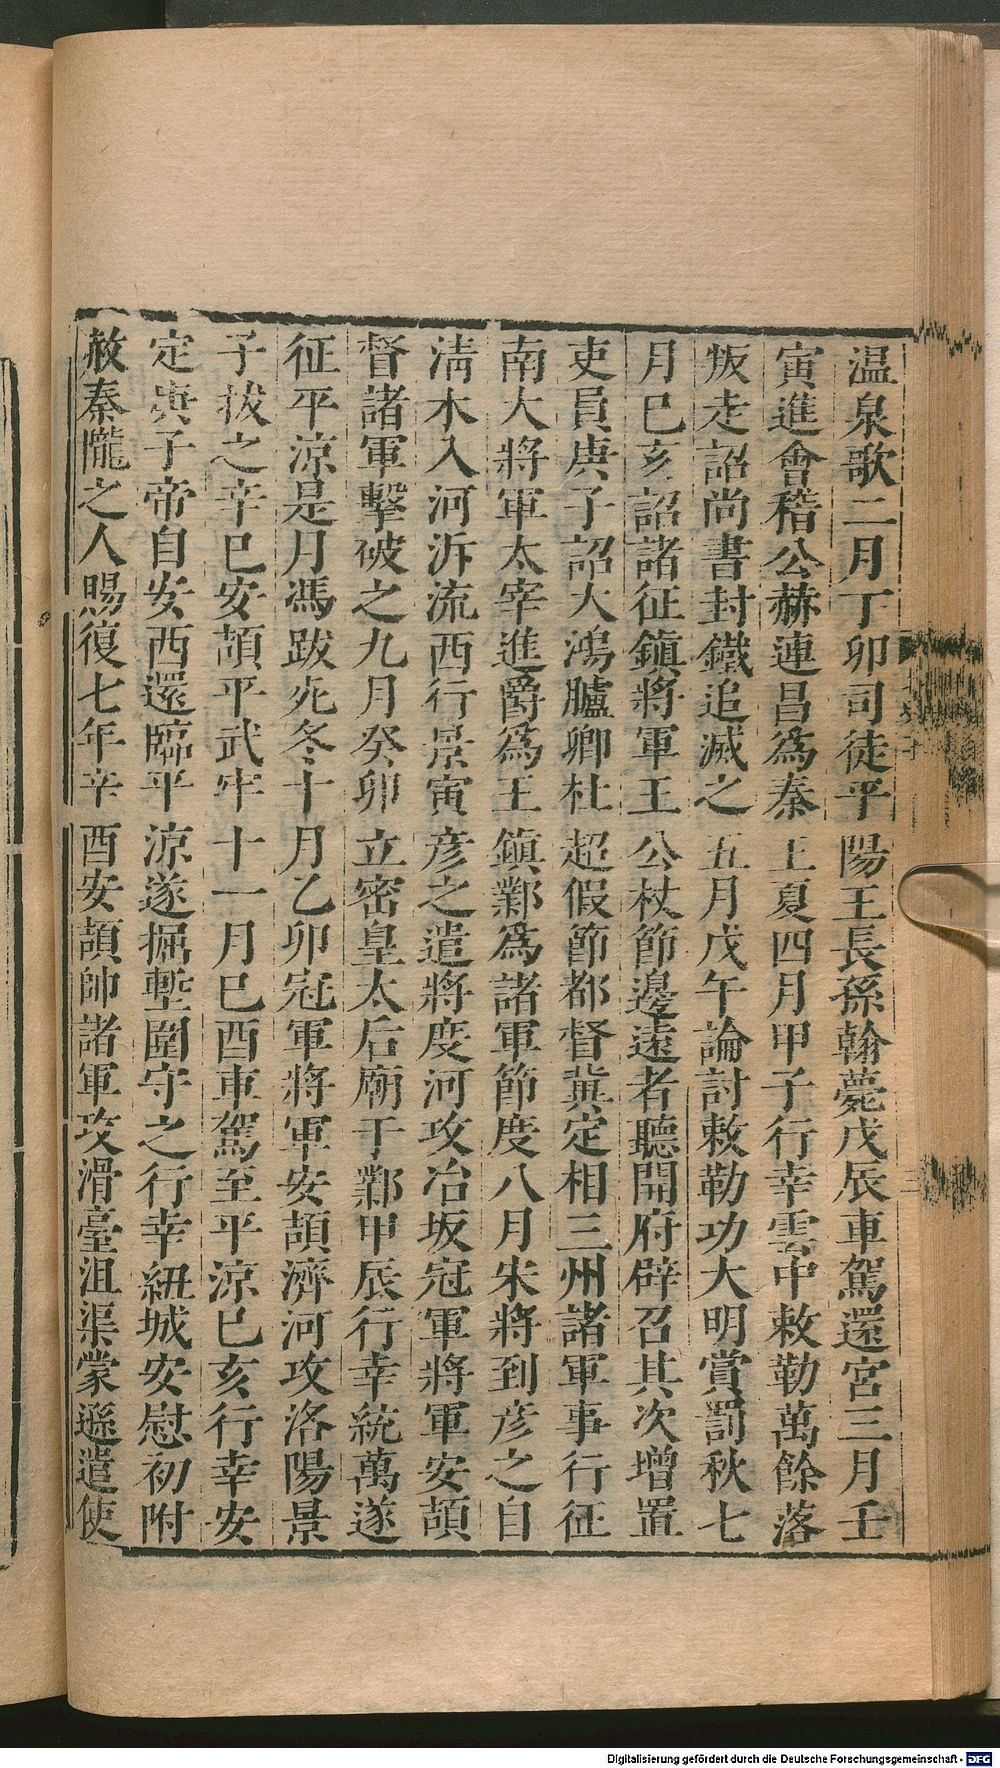 温泉歌二月丁卯司徒平陽王長孫翰薨戊辰車駕還宮三月壬
寅進會稽公赫連昌爲秦王夏四月甲子行幸雲中敕勒萬餘落
叛走詔尚書封鐵追滅之五月戊午論討敕勒功大明賞罰秋七
月巳亥詔諸征鎭將軍王公杖節邊遠者聽開府辟召其次增置
吏員庚子詔大鴻臚卿杜超假節都督冀定相三州諸軍事行征
南大將軍太宰進爵爲王鎭鄴爲諸軍節度八月宋將到彥之自
淸水入河泝流西行景寅彥之遣將度河攻冶坂冠軍將軍安頡
督諸軍擊破之九月癸卯立密皇太后廟于鄴甲辰行幸統萬遂
征平涼是月馮跋死冬十月乙卯冠軍將軍安頡濟河攻洛陽景
子拔之辛巳安頡平武牢十一月巳酉車駕至平涼巳亥行幸安
定庚子帝自安西還臨平涼遂掘塹圍守之行幸紐城安慰初附
赦秦隴之人賜復七年辛酉安頡帥諸軍攻滑臺沮渠蒙遜遣使
Digitalisierung gefördert durch die Deutsche Forschungsgemeinschaft - DFG